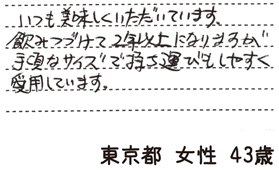 いつも美味しくいただいています。
飲みつづけて2年以上になりますが
手頃なサイズで持ち運びもしやすく
愛用しています。
東京都 女性 43歳